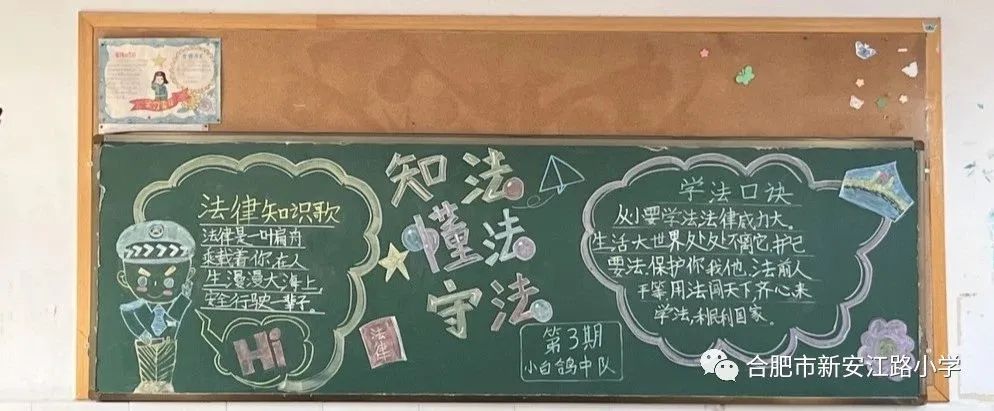 法律知识歌
法律是一叶扁舟
乘载着你在人
生漫漫大海上,
安全行驶一辈子。
Hi
知法
懂法
守法
法律
第3期
小白鸽中队
学法口诀
从小要学法法律威力大。
生活大世界处处不离它,护己
要法,保护你我他,法前人
平等用法闯天下齐心来
学法,利民利国家。
合肥市新安江路小学